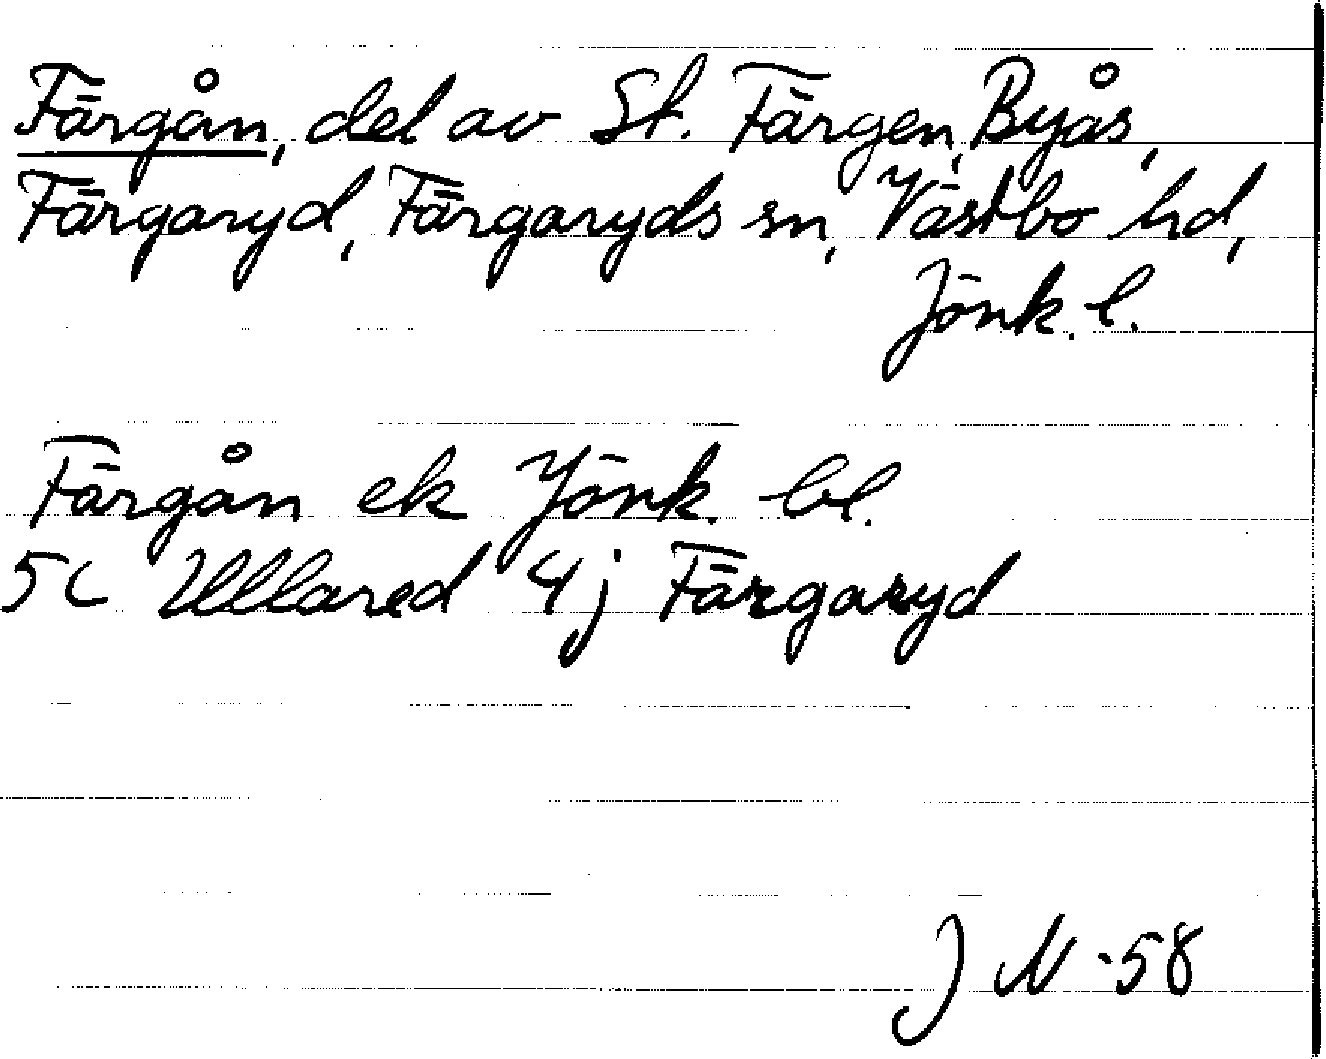 Färgån, del av St. Färgen, Byås,
Färgaryd, Färgaryds sn, Västbo hd,
Jönk. l.
Färgån ek Jönk. bl.
5c Ullared 4j Färgaryd
J N -58